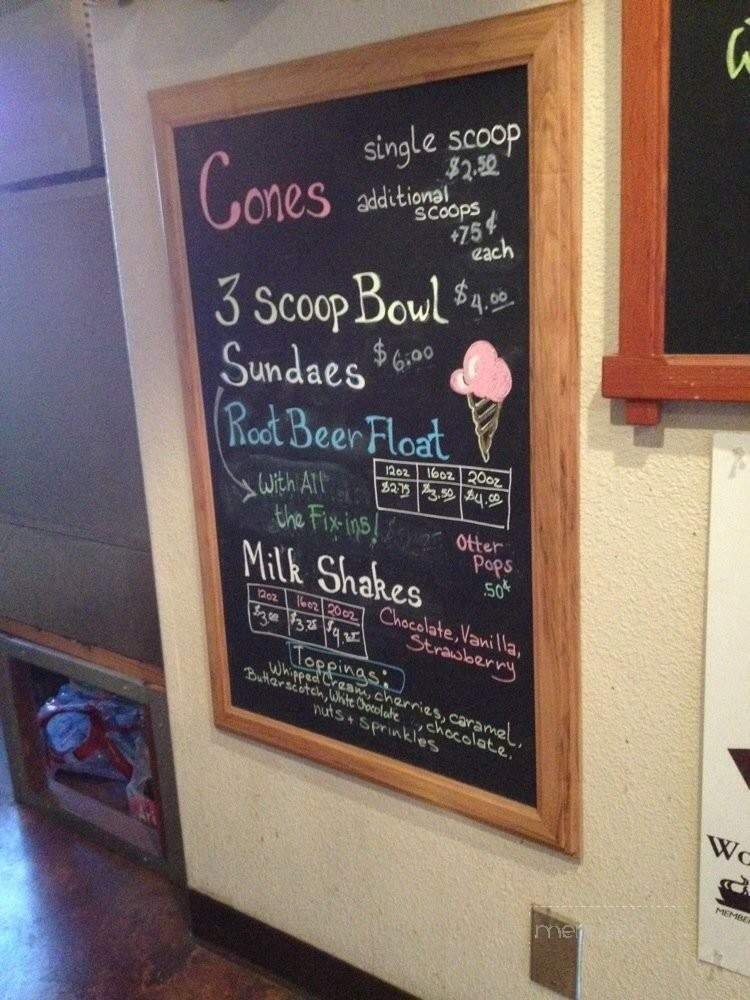 Cones
single scoop
$2.50
additional
scoops
+75¢
each
3 Scoop Bowl $4.00
Sundaes $6.00
Root Beer Float
With All
the Fix-ins!
12oz 16oz 20oz
$2.75 $3.50 $4.00
Otter
Pops
.50¢
Milk Shakes
12oz 16oz 20oz
$3.00 $3.25 $4.25
Chocolate, Vanilla,
Strawberry
Toppings:
Whipped Cream, cherries, caramel,
Butterscotch, White Chocolate, chocolate,
nuts + sprinkles
Wo
MEMBE